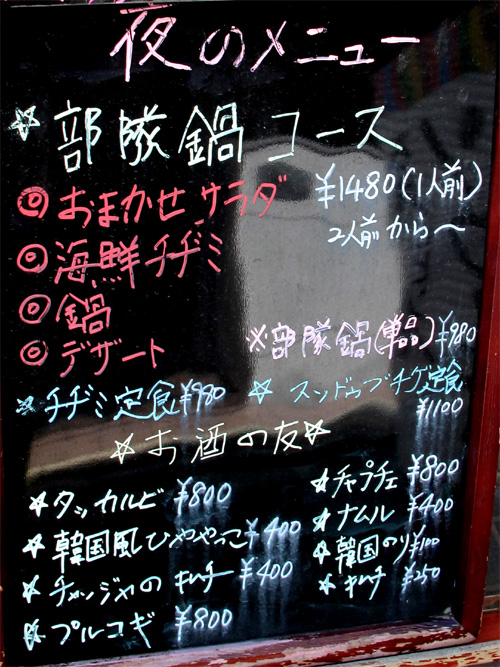 夜のメニュー
☆ 部隊鍋コース
¥1480(1人前)
2人前から〜
◎ おまかせサラダ
◎ 海鮮チヂミ
◎ 鍋
◎ デザート
※部隊鍋(単品)¥980
☆ チヂミ定食 ¥980
☆ スンドゥブチゲ定食
¥1100
☆お酒の友☆
☆ タッカルビ ¥800
☆ 韓国風ひややっこ ¥400
☆ チャンジャの キムチ ¥400
☆ プルコギ ¥800
☆ チャプチェ ¥800
☆ ナムル ¥400
☆ 韓国のり ¥100
☆ キムチ ¥250